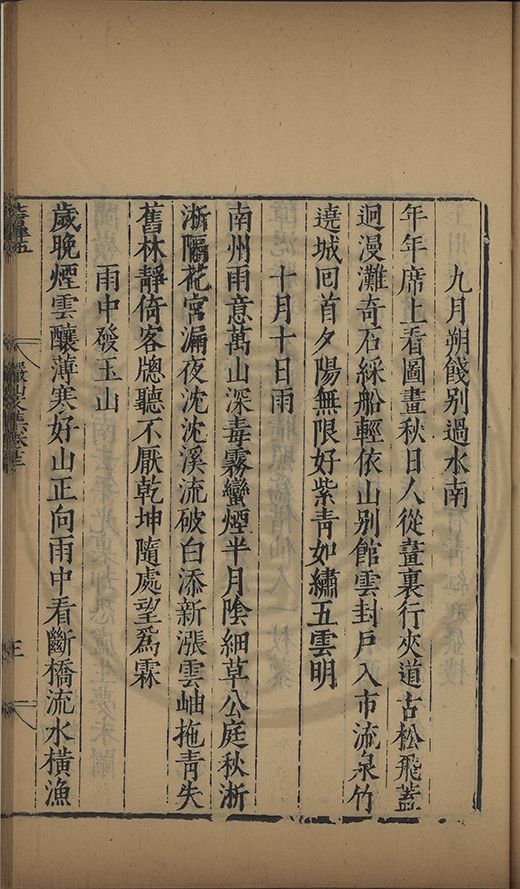 九月朔餞别過水南
年年席上看圖畫秋日人從畫裏行夾道古松飛蓋
迥漫灘奇石綵船輕依山别館雲封戶入市流泉竹
遶城回首夕陽無限好紫青如繡五雲明
十月十日雨
南州雨意萬山深毒霧蠻煙半月陰細草公庭秋淅
淅隔花宮漏夜沈沈溪流破白添新漲雲岫拖青失
舊林靜倚客牕聽不厭乾坤隨處望爲霖
雨中發玉山
歲晚煙雲釀薄寒好山正向雨中看斷橋流水橫漁